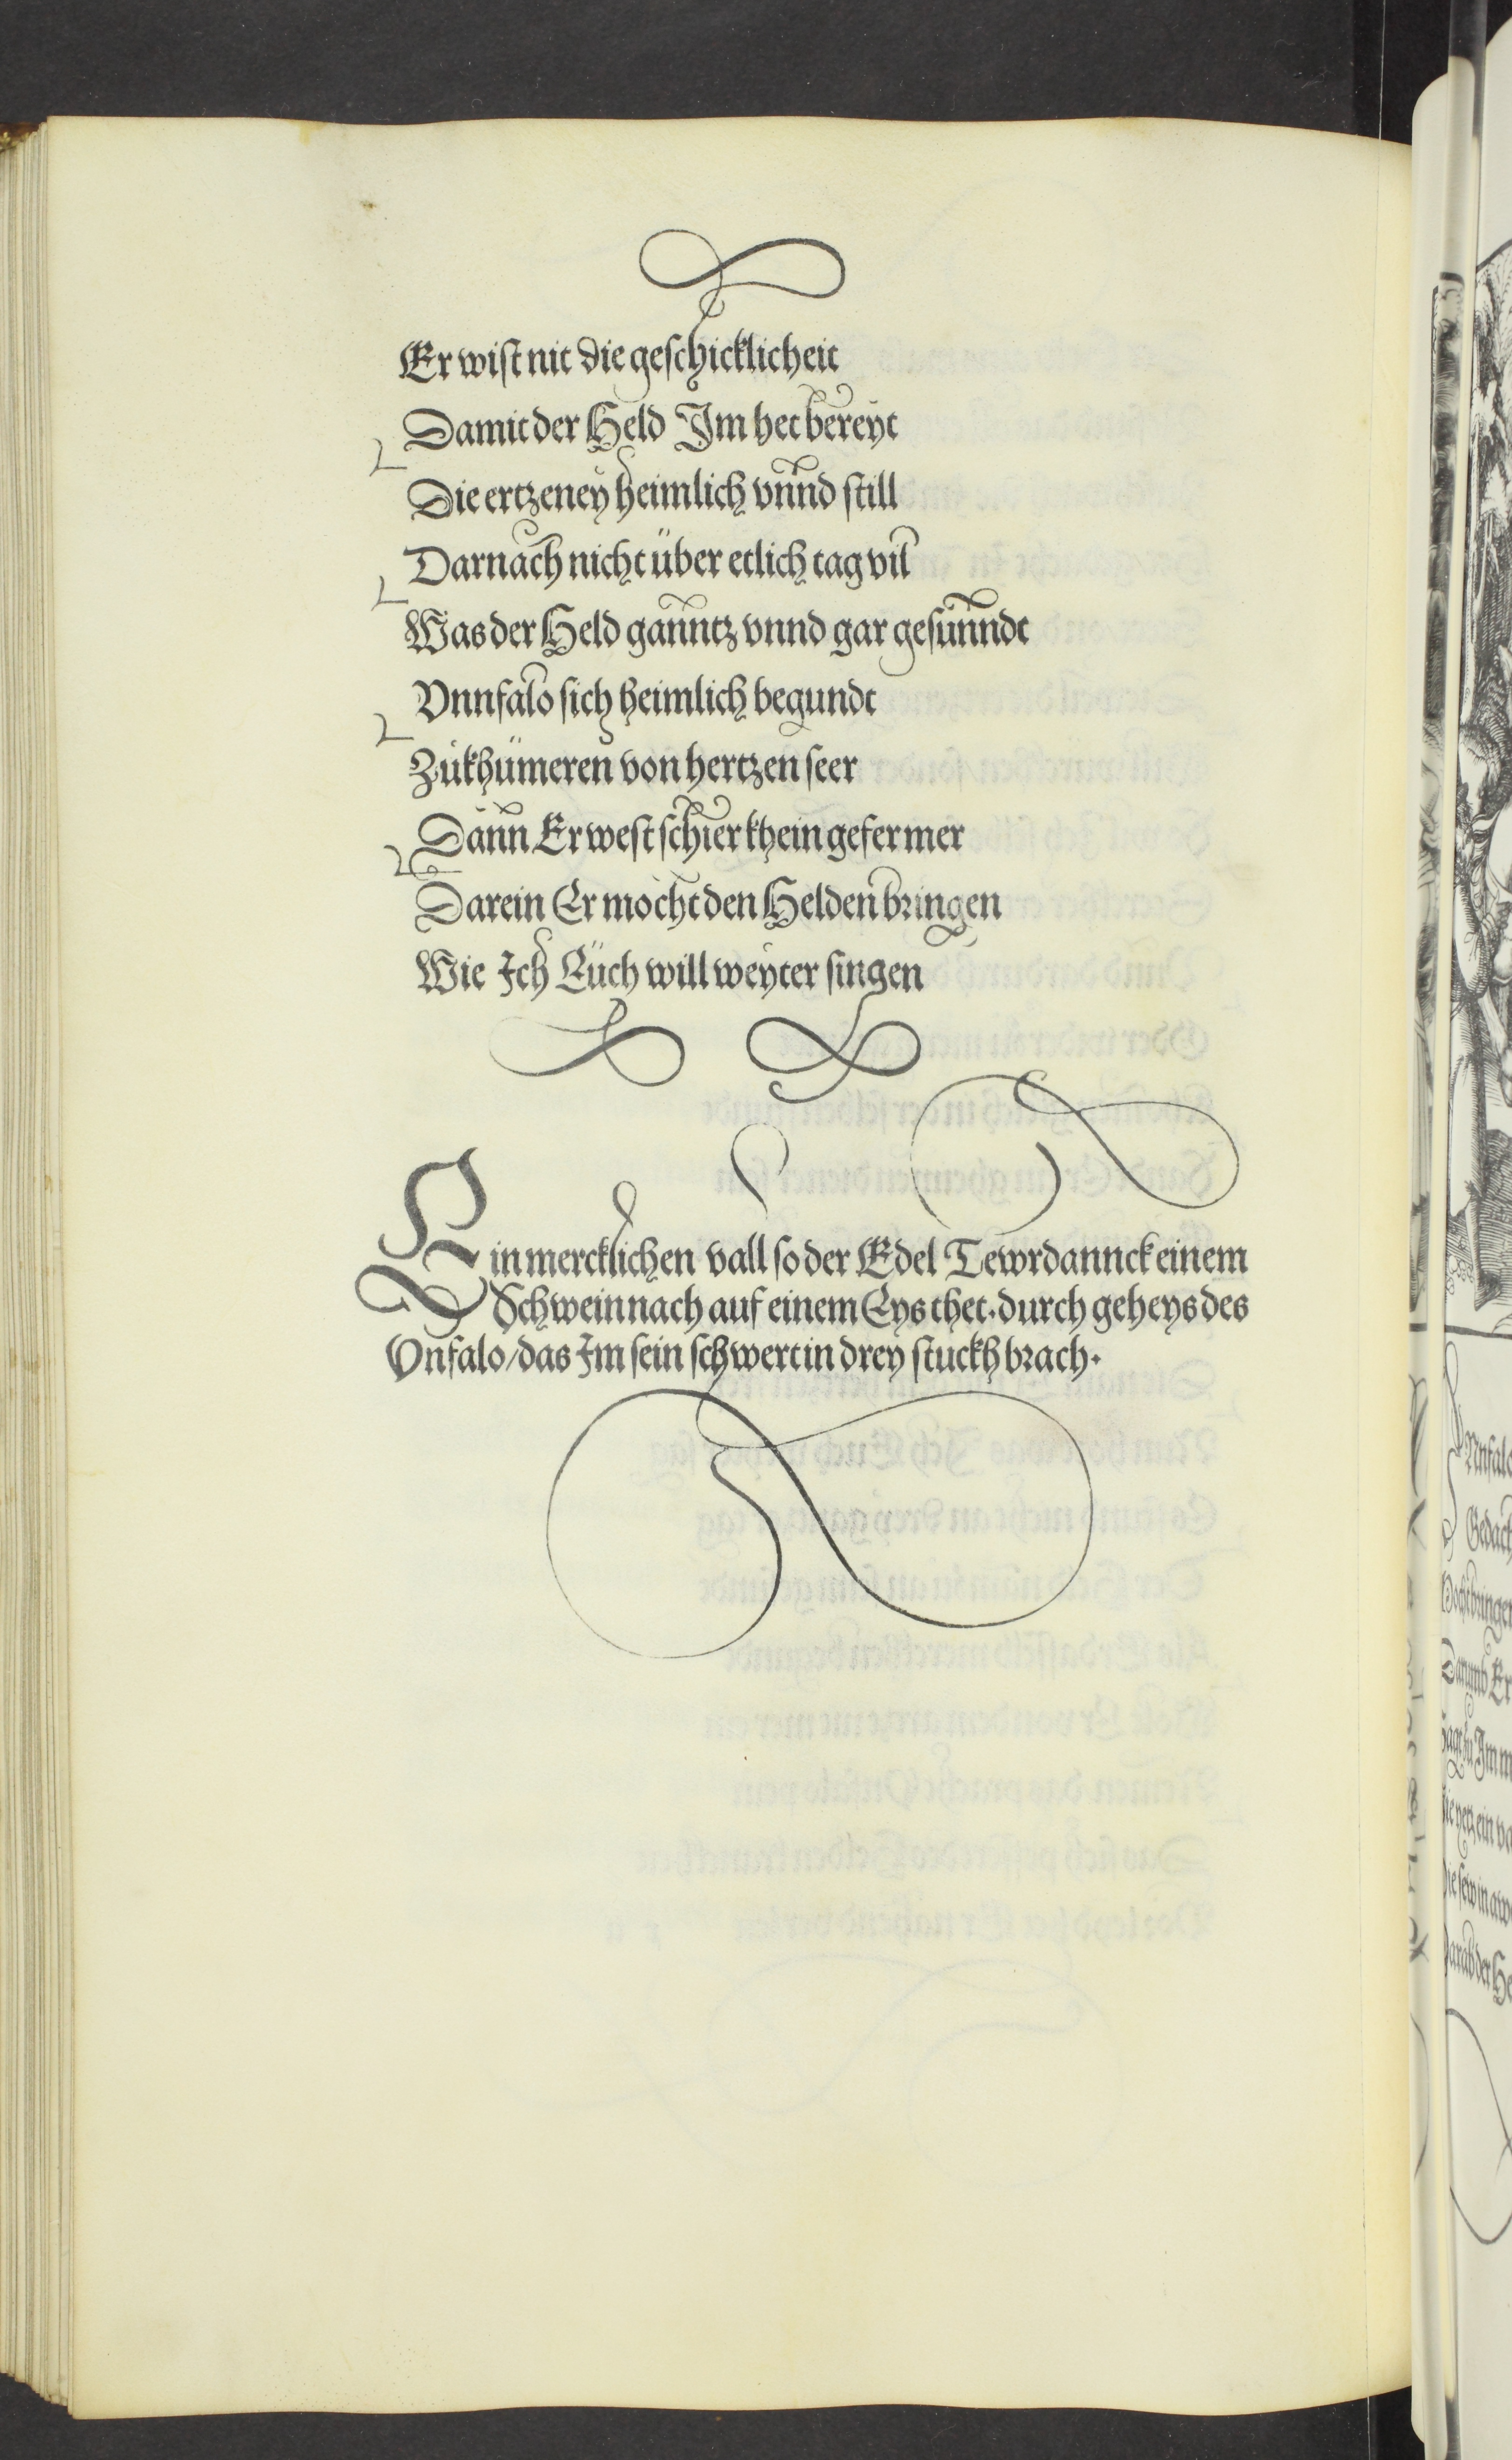 Er wist nit die geschicklicheit
Damit der Held Im het bereyt
Die ertzeney heimlich vnnd still
Darnach nicht über etlich tag vil
Was der Held ganntz vnnd gar gesunndt
Vnnfalo sich heimlich begundt
Zůkhümeren von hertzen seer
Dann Er west schier khein gefer mer
Darein Er möcht den Helden bringen
Wie Ich Eüch will weyter singen
Ein mercklichen vall so der Edel Tewrdannck einem
Schwein nach auf einem Eys thet. durch geheys des
Vnfalo/das Im sein schwert in drey stuckh brach.
Vnfalo
Gedach
Darumb Er